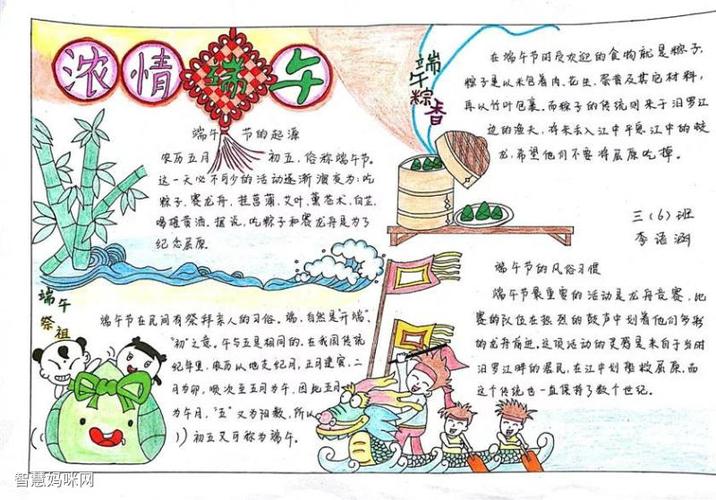 浓情端午
端午节的起源
农历五月初五,俗称端午节。
这一天必不可少的活动逐渐演变为:吃
粽子,赛龙舟,挂菖蒲,艾叶,薰苍术,白芷,
喝雄黄酒。据说,吃粽子和赛龙舟是为了
纪念屈原。
端午粽香
在端午节时受欢迎的食物就是粽子,
粽子是以米包着肉、花生、蛋黄及其它材料,
再以竹叶包裹。而粽子的传统则来于汨罗江
边的渔夫,将米丢入江中平息江中的蛟
龙,希望他们不要将屈原吃掉。
三(6)班
李语涵
端午祭祖
端午节在民间有祭拜亲人的习俗。端,自然是"开端",
"初"之意。午与五是相同的,在我国传统
纪年里,农历以地支纪月,正月建寅,二
月为卯,顺次至五月为午,因此五月
为午月,"五"又为阳数,所以
初五又可称为端午。
端午节的风俗习惯
端午节最重要的活动是龙舟竞赛,比
赛的队伍在热烈的鼓声中划着他们多彩
的龙舟前进。这项活动的灵感是来自于当时
汨罗江畔的居民,在江中划船救屈原,而
这个传统也一直保持了数个世纪。
智慧妈咪网